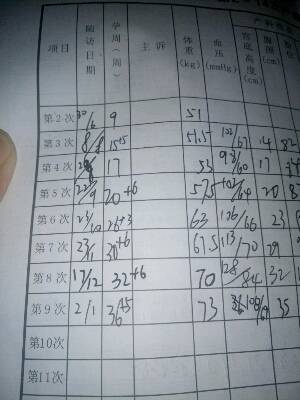 产科检
项目 随访日期 孕周(周) 主诉 体重(kg) 血压(mmHg) 宫底高度(cm) 腹围(cm)
第2次 30/6 9 51
第3次 8/8 15+5 51.5 102/67 14 82
第4次 17 53 98/60 17
第5次 22/9 20+6 57.5 102/64 20 8
第6次 23/10 26+3 63 106/66 23
第7次 23/11 30+6 67.5 113/70 29
第8次 17/12 32+6 70 128/84 32
第9次 2/1 36+5 73 35
第10次
第11次